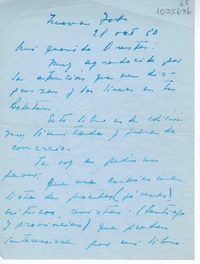 Nueva York
28 oct 60
1075636
Mi querido Orestes:
Muy agradecido por
la atención que me dis-
pensas y las líneas en tu
Este libro es de edición
muy limitada y fuera de
comercio.
Te voy a pedir un
favor:
Que me envíes una
lista de poetas (jóvenes)
críticos, revistas (Santiago
y provincias) que puedan
interesarse por mi libro